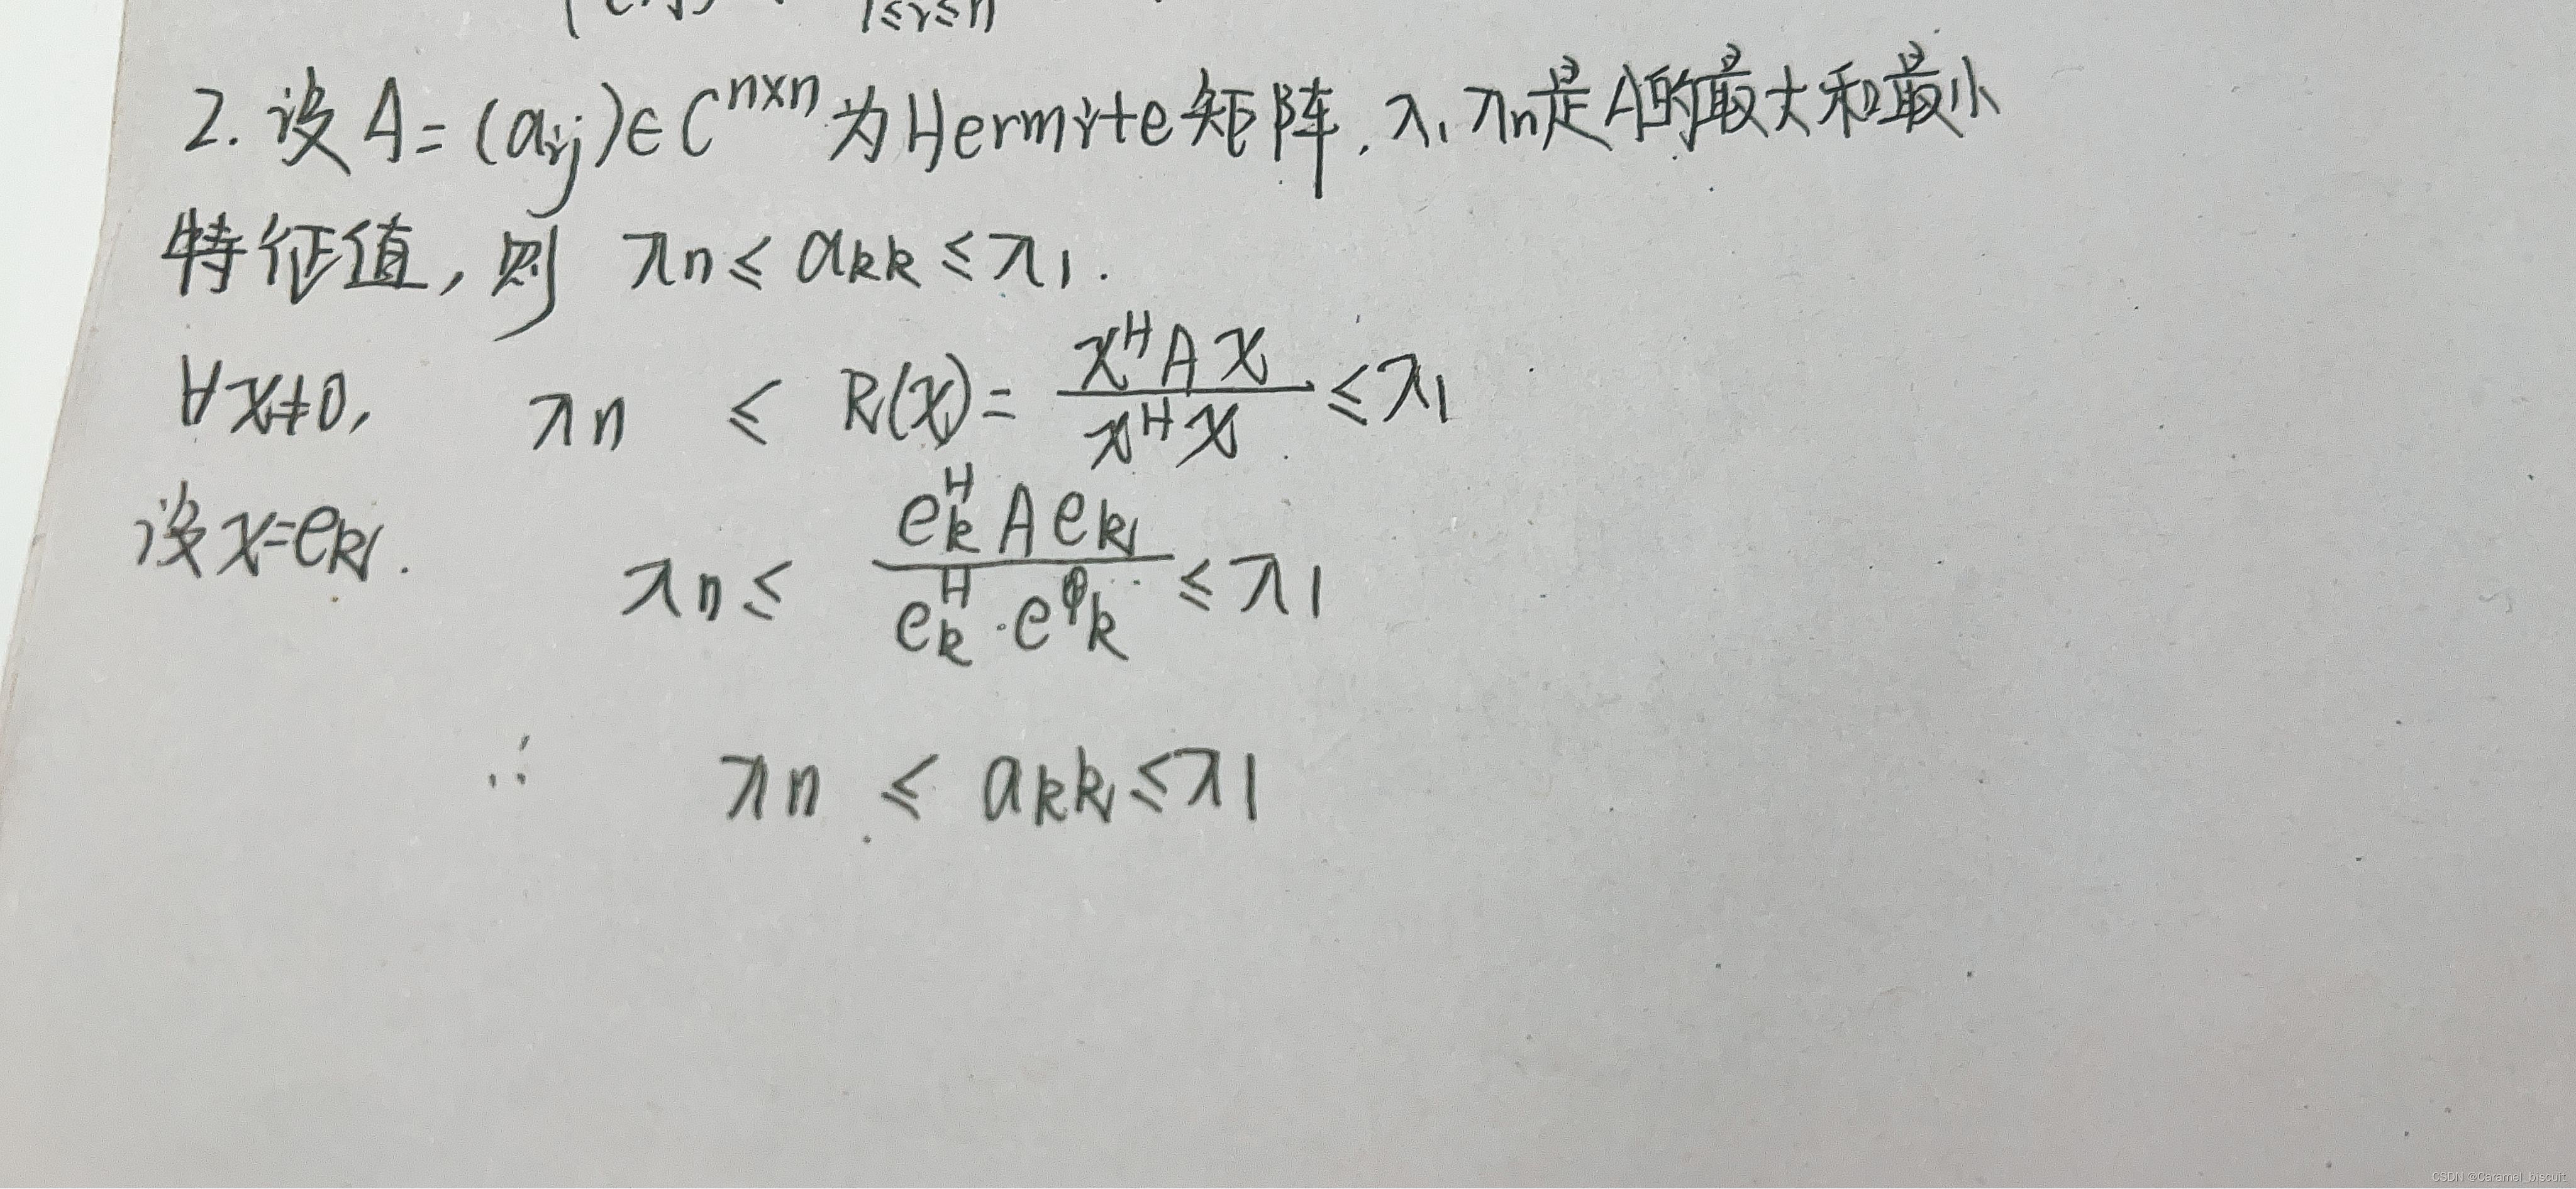 1≤i≤n
2. 设 A = (aij)∈C^{n×n} 为Hermite矩阵, λ1 λn是A的最大和最小
特征值, 则 λn ≤ akk ≤ λ1.
∀x≠0, λn ≤ R(x) = x^H A x / x^H x ≤ λ1
设x=ek. λn ≤ ek^H A ek / ek^H · ek ≤ λ1
∴ λn ≤ akk ≤ λ1
CSDN @Caramel_biscuit